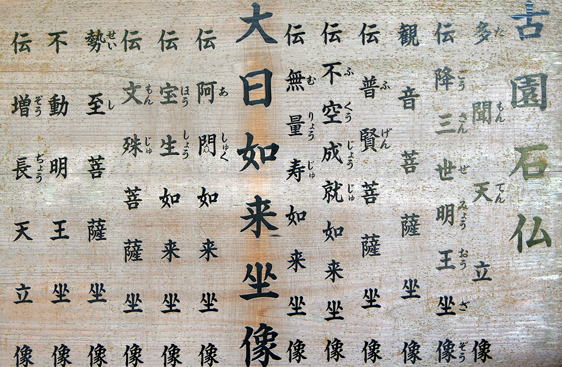 古園石仏
多聞天立像
伝降三世明王坐像
観音菩薩坐像
伝普賢菩薩坐像
伝不空成就如来坐像
伝無量寿如来坐像
大日如来坐像
伝阿閦如来坐像
伝宝生如来坐像
伝文殊菩薩坐像
勢至菩薩坐像
不動明王坐像
伝増長天立像